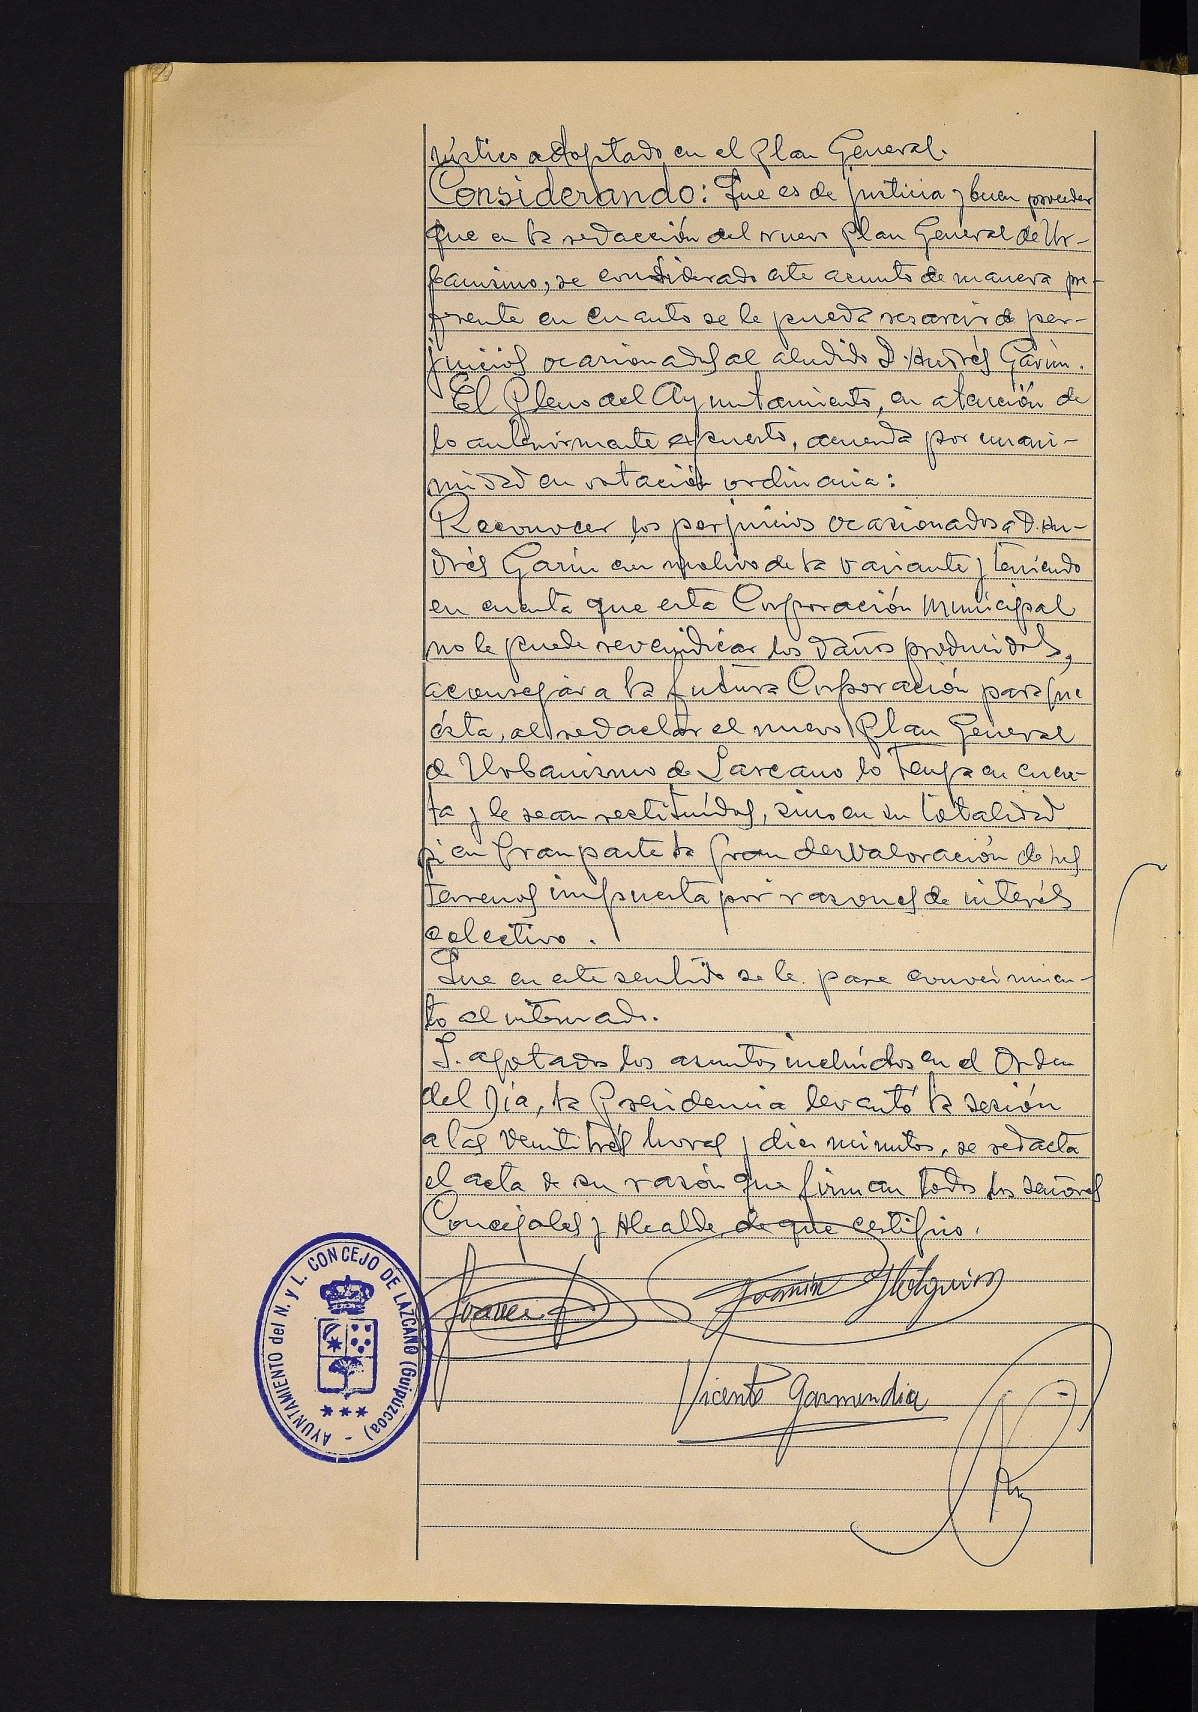 rústico adoptado en el Plan General.
Considerando: Que es de justicia y buen proceder
que en la redacción del nuevo Plan General de Ur-
banismo, se considerado este asunto de manera pre-
ferente en cuanto se le pueda resarcir de per-
juicios ocasionados al aludido D. Andrés Garín.
El Pleno del Ayuntamiento, en atención de
lo anteriormente expuesto, acuerda por unani-
midad en votación ordinaria:
Reconocer los perjuicios ocasionados a D. An-
drés Garín con motivo de la variante y teniendo
en cuenta que esta Corporación Municipal
no le puede reveindicar los daños producidos,
aconsejar a la futura Corporación para que
ésta, al redactar el nuevo Plan General
de Urbanismo de Lazcano lo tenga en cuen-
ta y le sean restituídos, sino en su totalidad
si en Gran parte la gran desvaloración de sus
terrenos impuesta por razones de interés
colectivo.
Que en este sentido se le pase conocimien-
to al interesado.
Y. agotados los asuntos incluídos en el Orden
del Día, la Presidencia levantó la sesión
a las veintitrés horas y diez minutos, se redacta
el acta de su razón que firman todos los señores
Concejales y Alcalde de que certifico.
Vicente Garmendia
AYUNTAMIENTO del N. y L. CONCEJO DE LAZCANO (Guipúzcoa)